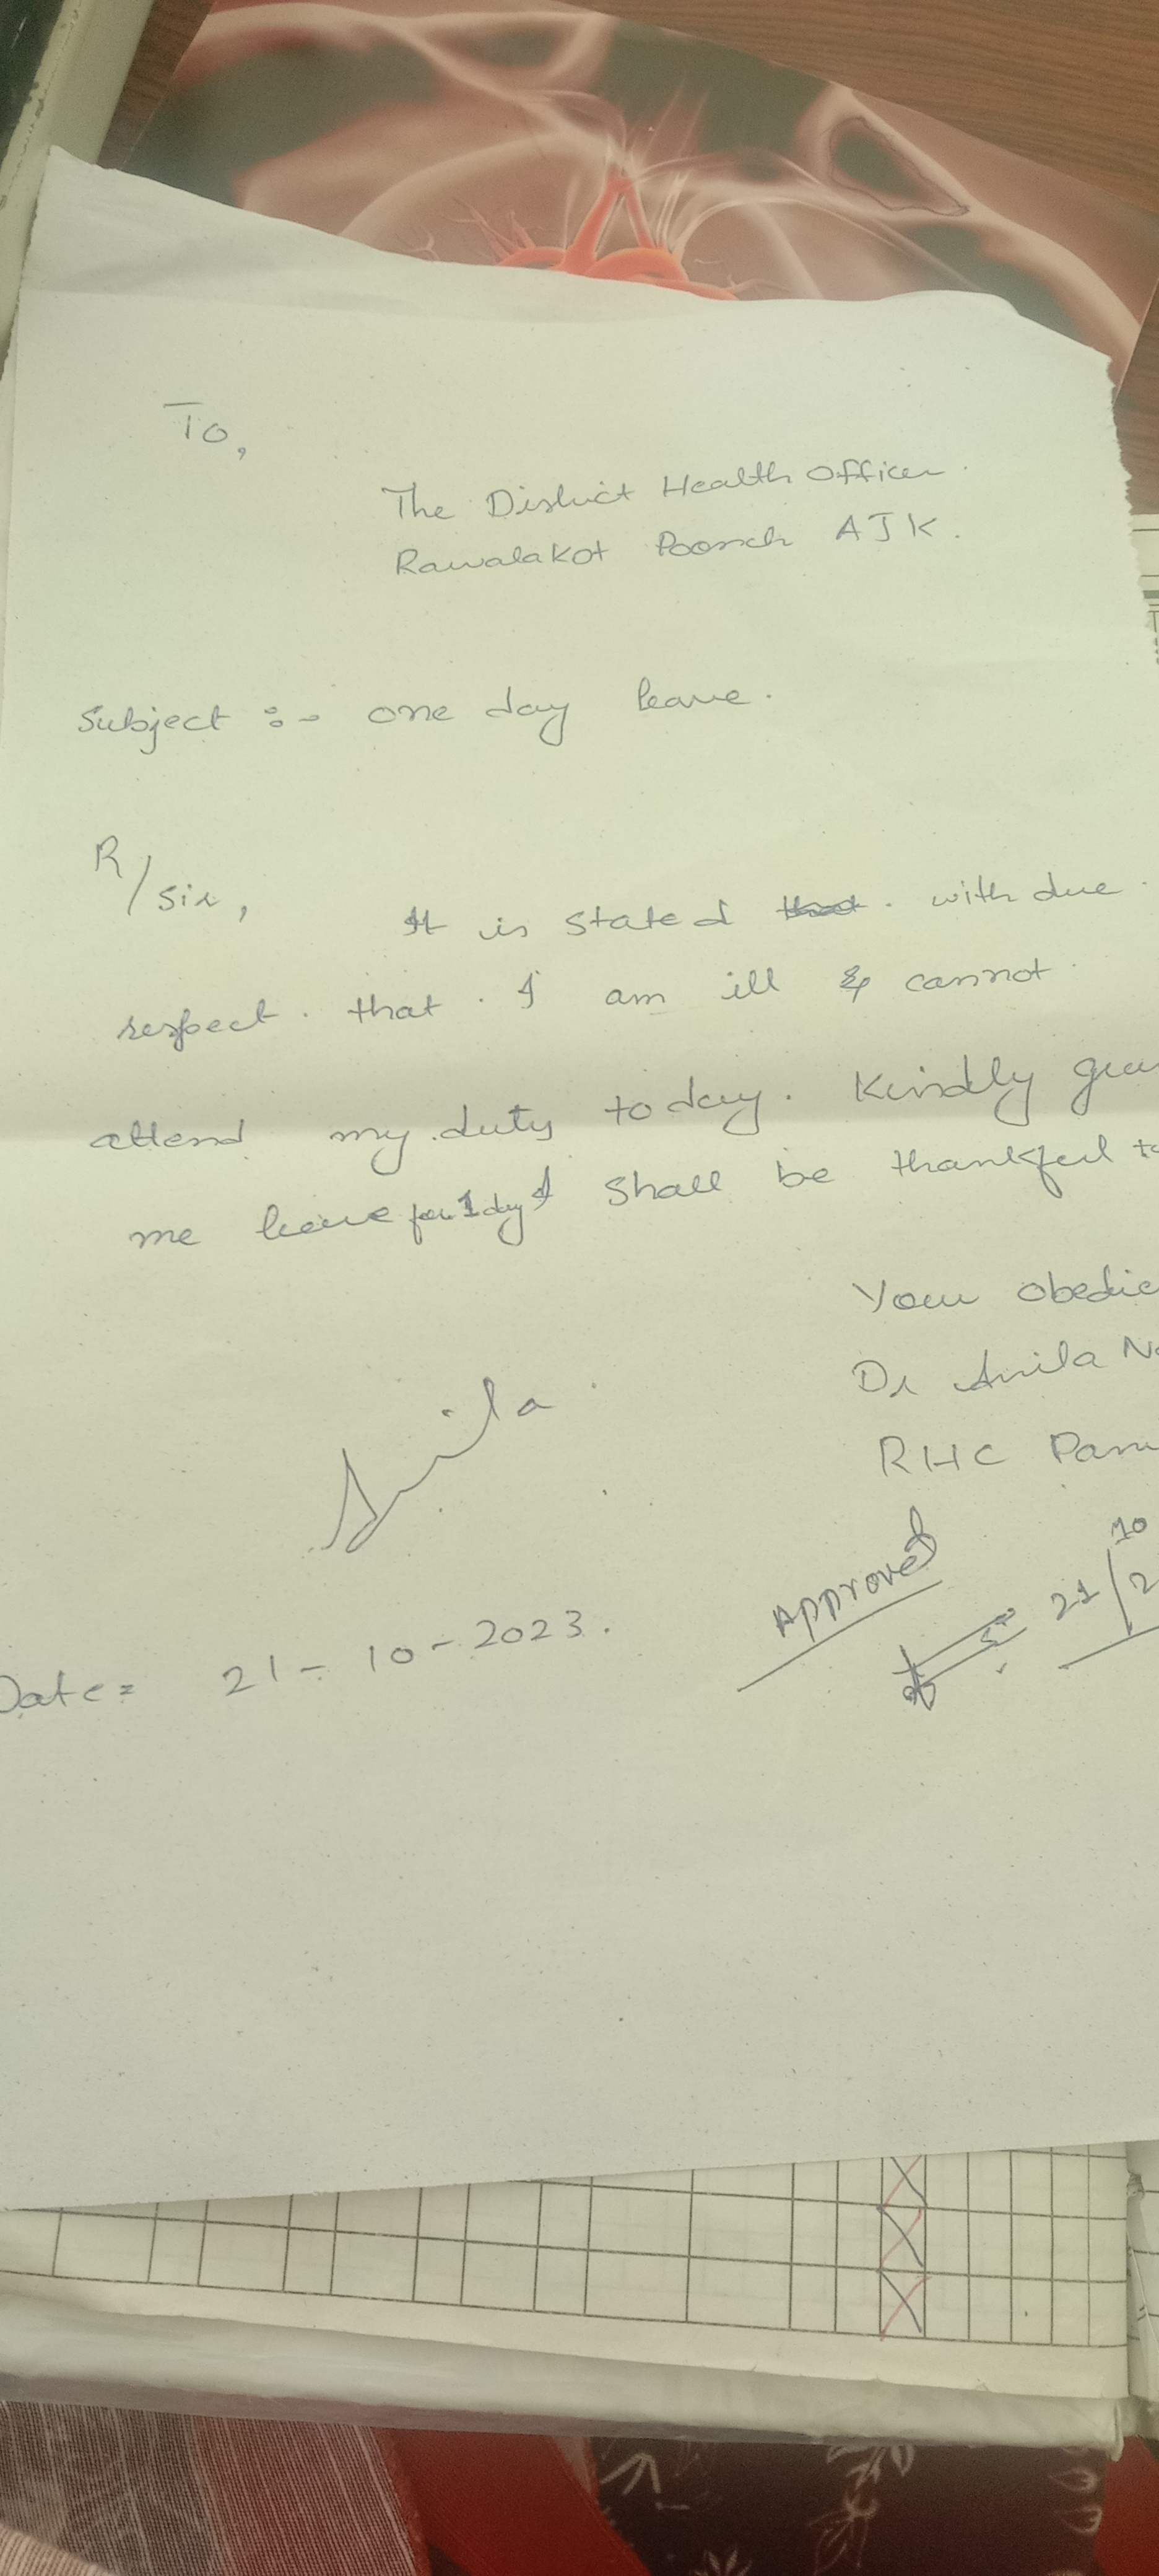 To,
The District Health Officer
Rawalakot Poonch AJK.
Subject :- one day leave.
R/Sir,
It is stated that with due
respect that I am ill & cannot
attend my duty today. Kindly
me leave for 1 day I shall be thankful
Your
Dr Anila
RHC
Anila
Approved
21/10
Date= 21-10-2023.